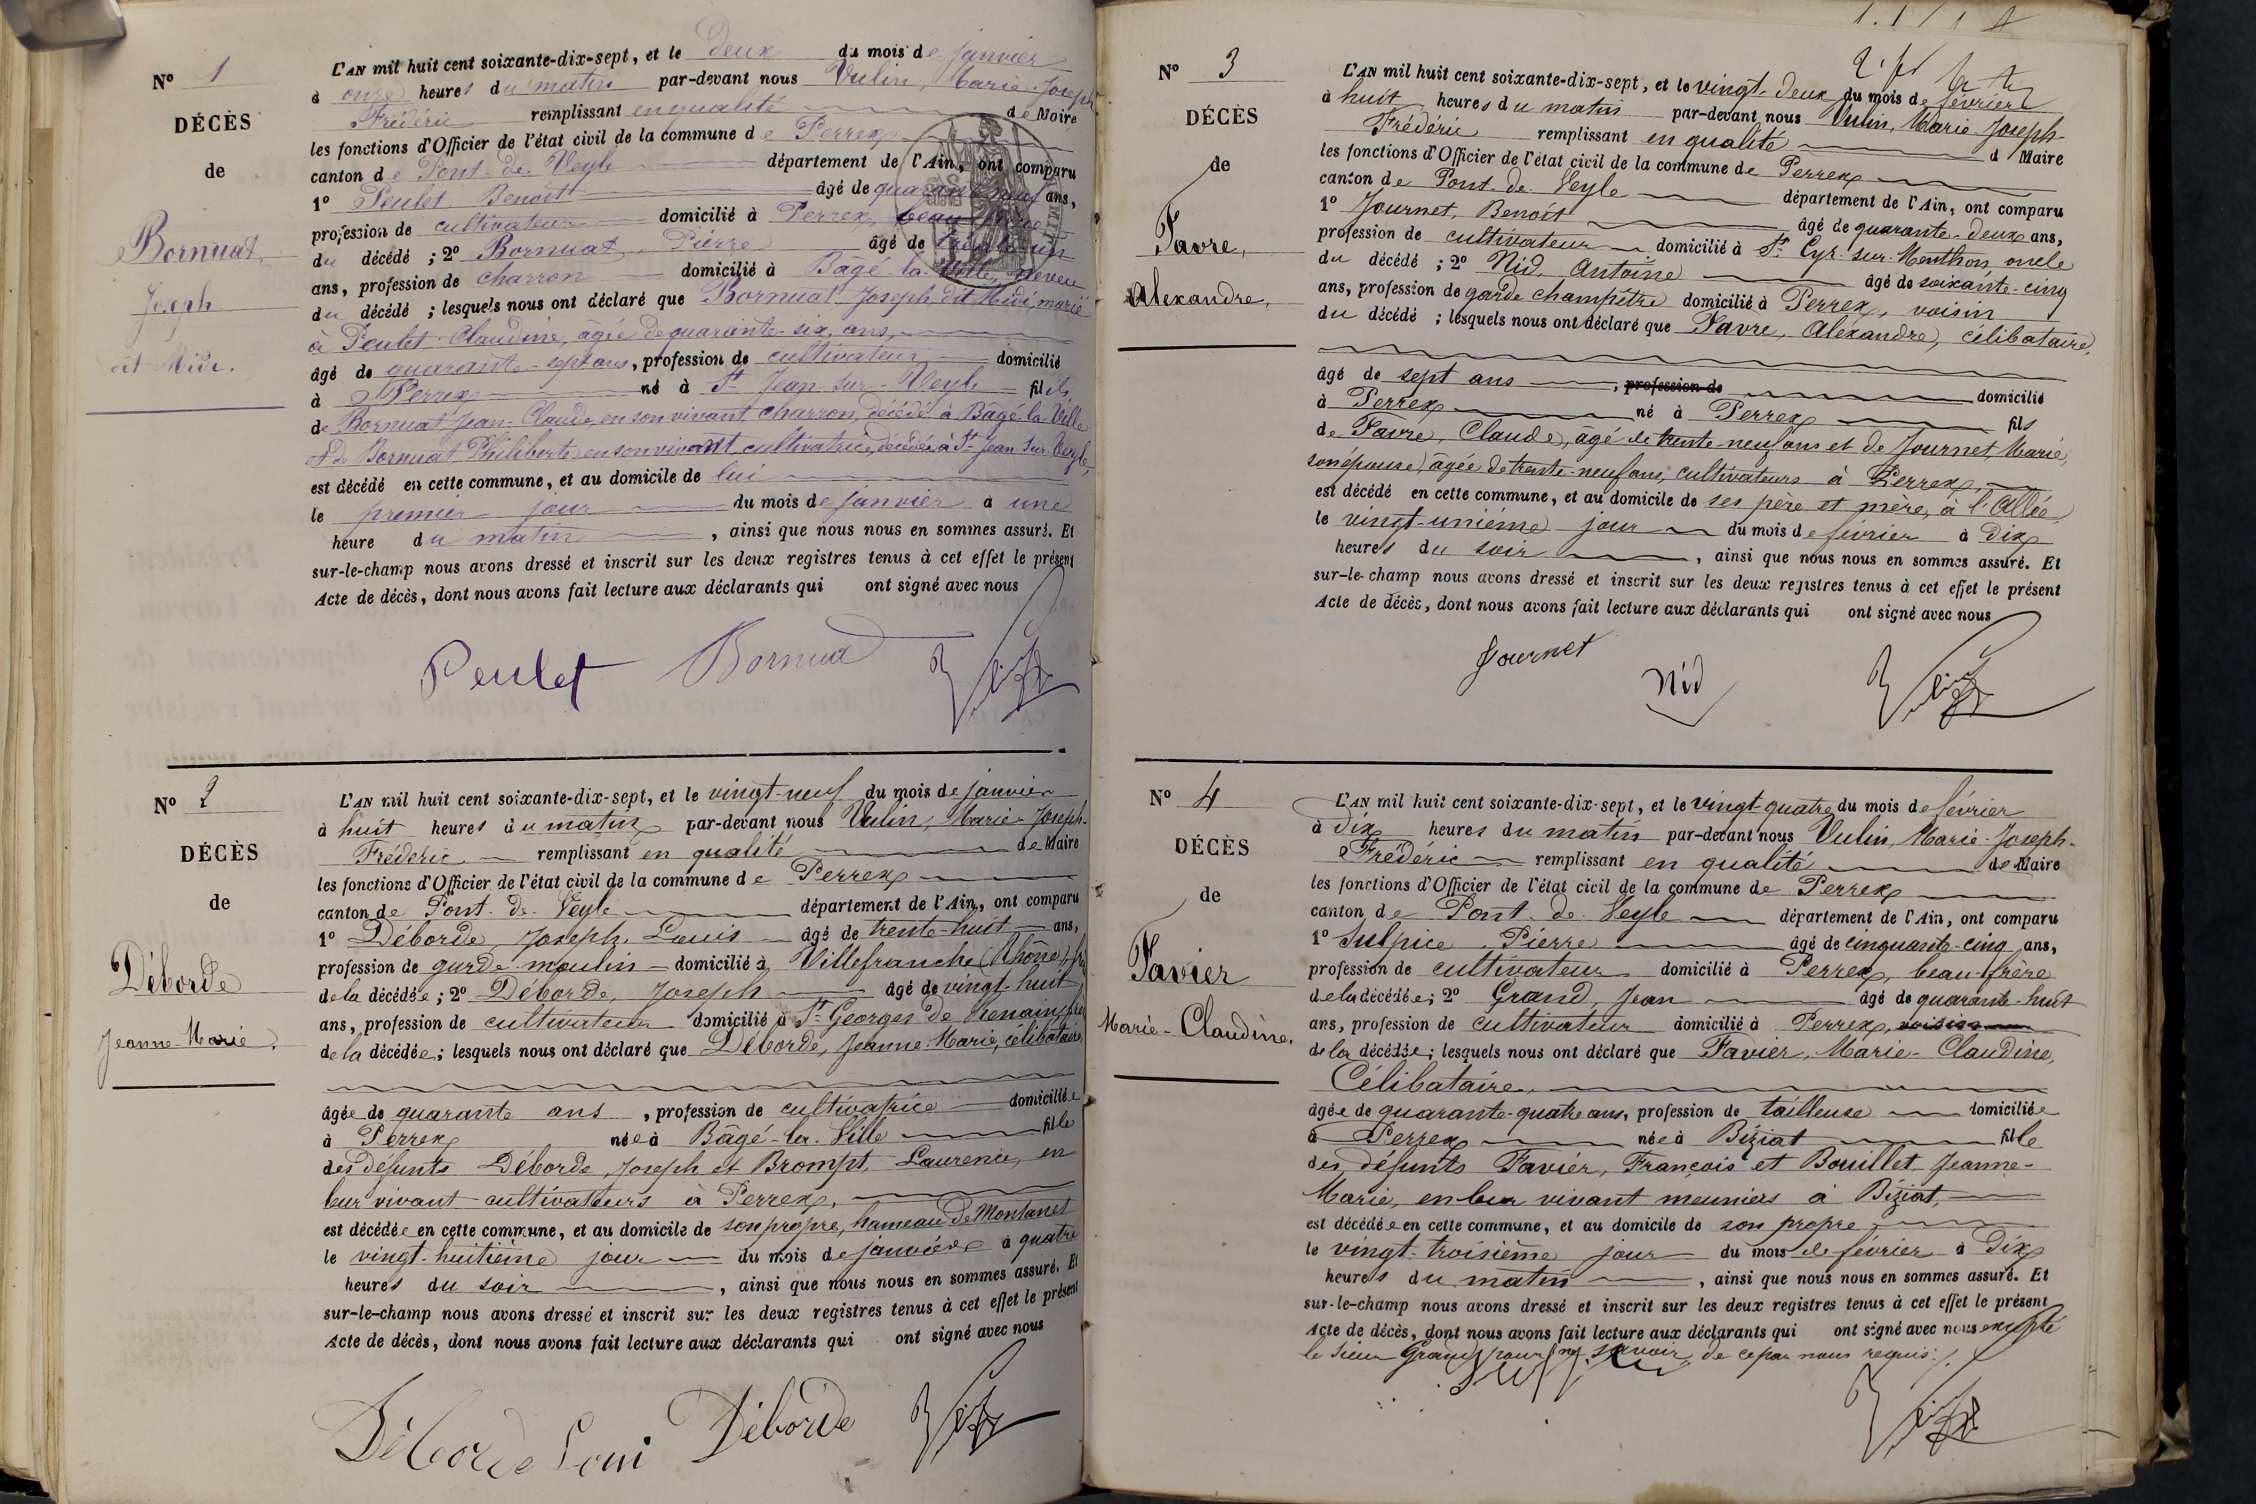 N° 1
DÉCÈS
de
Bornuat,
Joseph
dit Midi.
L'AN mil huit cent soixante-dix-sept, et le Deux du mois de janvier
à onze heures du matin par-devant nous Vulin, Marie-Joseph
Frédéric remplissant en qualité de Maire
les fonctions d'Officier de l'état civil de la commune de Perrex
canton de Pont-de-Veyle département de l'Ain, ont comparu
1° Peulet, Benoît âgé de quarante-neuf ans,
profession de cultivateur domicilié à Perrex, beau-frère
du décédé ; 2° Bornuat, Pierre âgé de trente-un
ans, profession de charron domicilié à Bâgé-la-Ville, neveu
du décédé ; lesquels nous ont déclaré que Bornuat Joseph dit Midi, marié
à Peulet Claudine, âgée de quarante-six ans,
âgé de quarante-sept ans, profession de cultivateur domicilié
à Perrex né à St Jean-sur-Veyle fils
de Bornuat Jean-Claude, en son vivant charron, décédé à Bâgé-la-Ville
et de Bornuat Philiberte en son vivant cultivatrice, décédée à St Jean-sur-Veyle,
est décédé en cette commune, et au domicile de lui
le premier jour du mois de janvier à une
heure du matin , ainsi que nous nous en sommes assuré. Et
sur-le-champ nous avons dressé et inscrit sur les deux registres tenus à cet effet le présent
Acte de décès, dont nous avons fait lecture aux déclarants qui ont signé avec nous
Peulet Bornua
N° 2
DÉCÈS
de
Déborde
Jeanne-Marie.
L'AN mil huit cent soixante-dix-sept, et le vingt-neuf du mois de janvier
à huit heures du matin par-devant nous Vulin, Marie-Joseph-
Frédéric remplissant en qualité de Maire
les fonctions d'Officier de l'état civil de la commune de Perrex
canton de Pont-de-Veyle département de l'Ain, ont comparu
1° Déborde, Joseph-Louis âgé de trente-huit ans,
profession de garde-moulin domicilié à Villefranche (Rhône)
de la décédée ; 2° Déborde, Joseph âgé de vingt-huit
ans, profession de cultivateur domicilié à St Georges de Renains
de la décédée ; lesquels nous ont déclaré que Déborde, Jeanne-Marie, célibataire
âgée de quarante ans , profession de cultivatrice domiciliée
à Perrex née à Bâgé-la-Ville fille
des défunts Déborde, Joseph et Brompt, Laurence, en
leur vivant cultivateurs à Perrex,
est décédée en cette commune, et au domicile de son propre, hameau de Montanet
le vingt-huitième jour du mois de janvier à quatre
heures du soir , ainsi que nous nous en sommes assuré. Et
sur-le-champ nous avons dressé et inscrit sur les deux registres tenus à cet effet le présent
Acte de décès, dont nous avons fait lecture aux déclarants qui ont signé avec nous
Déborde Loui Déborde
N° 3
DÉCÈS
de
Favre,
Alexandre,
L'AN mil huit cent soixante-dix-sept, et le vingt-deux du mois de février
à huit heures du matin par-devant nous Vulin, Marie-Joseph-
Frédéric remplissant en qualité d Maire
les fonctions d'Officier de l'état civil de la commune de Perrex
canton de Pont-de-Veyle département de l'Ain, ont comparu
1° Journet, Benoît âgé de quarante-deux ans,
profession de cultivateur domicilié à St Cyr-sur-Menthon, oncle
du décédé ; 2° Nid, Antoine âgé de soixante-cinq
ans, profession de garde champêtre domicilié à Perrex, voisin
du décédé ; lesquels nous ont déclaré que Favre, Alexandre, célibataire,
âgé de sept ans , profession de domicilié
à Perrex né à Perrex fils
de Favre, Claude, âgé de trente-neuf ans et de Journet Marie,
son épouse, âgée de trente-neuf ans, cultivateurs à Perrex,
est décédé en cette commune, et au domicile de ses père et mère, à l'Allée,
le vingt-unième jour du mois de février à Dix
heures du soir , ainsi que nous nous en sommes assuré. Et
sur-le-champ nous avons dressé et inscrit sur les deux registres tenus à cet effet le présent
Acte de décès, dont nous avons fait lecture aux déclarants qui ont signé avec nous
Journet Nid
N° 4
DÉCÈS
de
Favier
Marie-Claudine.
L'AN mil huit cent soixante-dix-sept, et le vingt-quatre du mois de février
à Dix heures du matin par-devant nous Vulin, Marie-Joseph-
Frédéric remplissant en qualité de Maire
les fonctions d'Officier de l'état civil de la commune de Perrex
canton de Pont-de-Veyle département de l'Ain, ont comparu
1° Sulpice, Pierre âgé de cinquante-cinq ans,
profession de cultivateur domicilié à Perrex, beau-frère
de la décédée ; 2° Grand, Jean âgé de quarante-huit
ans, profession de cultivateur domicilié à Perrex, voisin
de la décédée ; lesquels nous ont déclaré que Favier, Marie-Claudine,
Célibataire,
âgée de quarante-quatre ans, profession de tailleuse domiciliée
à Perrex née à Biziat fille
des défunts Favier, François et Bouillet, Jeanne-
Marie, en leur vivant meuniers à Biziat,
est décédée en cette commune, et au domicile de son propre
le vingt-troisième jour du mois de février à Dix
heures du matin , ainsi que nous nous en sommes assuré. Et
sur-le-champ nous avons dressé et inscrit sur les deux registres tenus à cet effet le présent
Acte de décès, dont nous avons fait lecture aux déclarants qui ont signé avec nous excepté
le sieur Grand pour ne savoir, de ce par nous requis.